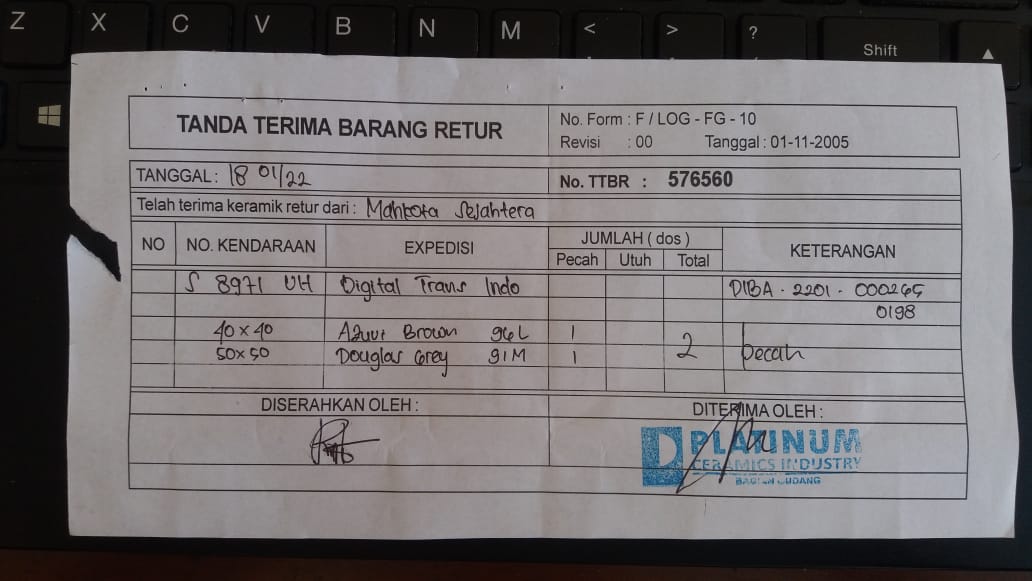 Z X C V B N M < > ? Shift
TANDA TERIMA BARANG RETUR
No. Form : F / LOG - FG - 10
Revisi : 00 Tanggal : 01-11-2005
TANGGAL : 18 01/22
No. TTBR : 576560
Telah terima keramik retur dari : Mahkota Sejahtera
NO NO. KENDARAAN EXPEDISI JUMLAH ( dos ) KETERANGAN
Pecah Utuh Total
S 8971 UH Digital Trans Indo DIBA - 2201 - 000265
0198
40 x 40 Brown 1
50 x 50 Douglas Grey 91M 1 2 pecah
DISERAHKAN OLEH : DITERIMA OLEH :
PLATINUM
CERAMICS INDUSTRY
BAGIAN GUDANG